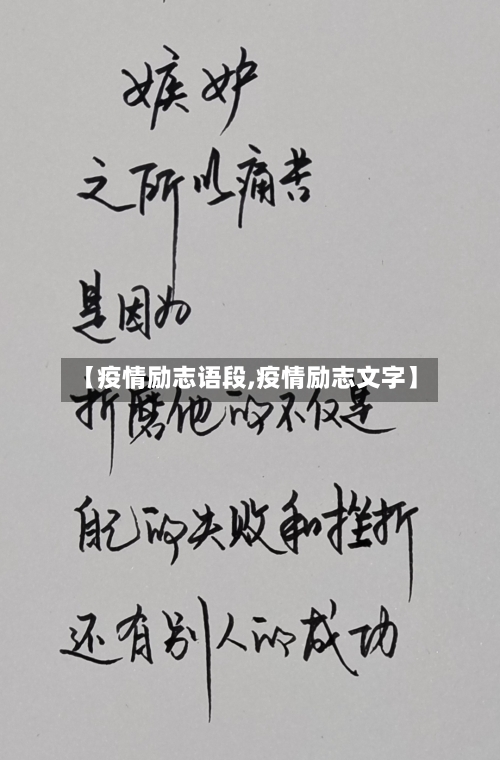 嫉妒
之所以痛苦
是因为
【疫情励志语段,疫情励志文字】
折磨他的不仅是
自己的失败和挫折
还有别人的成功